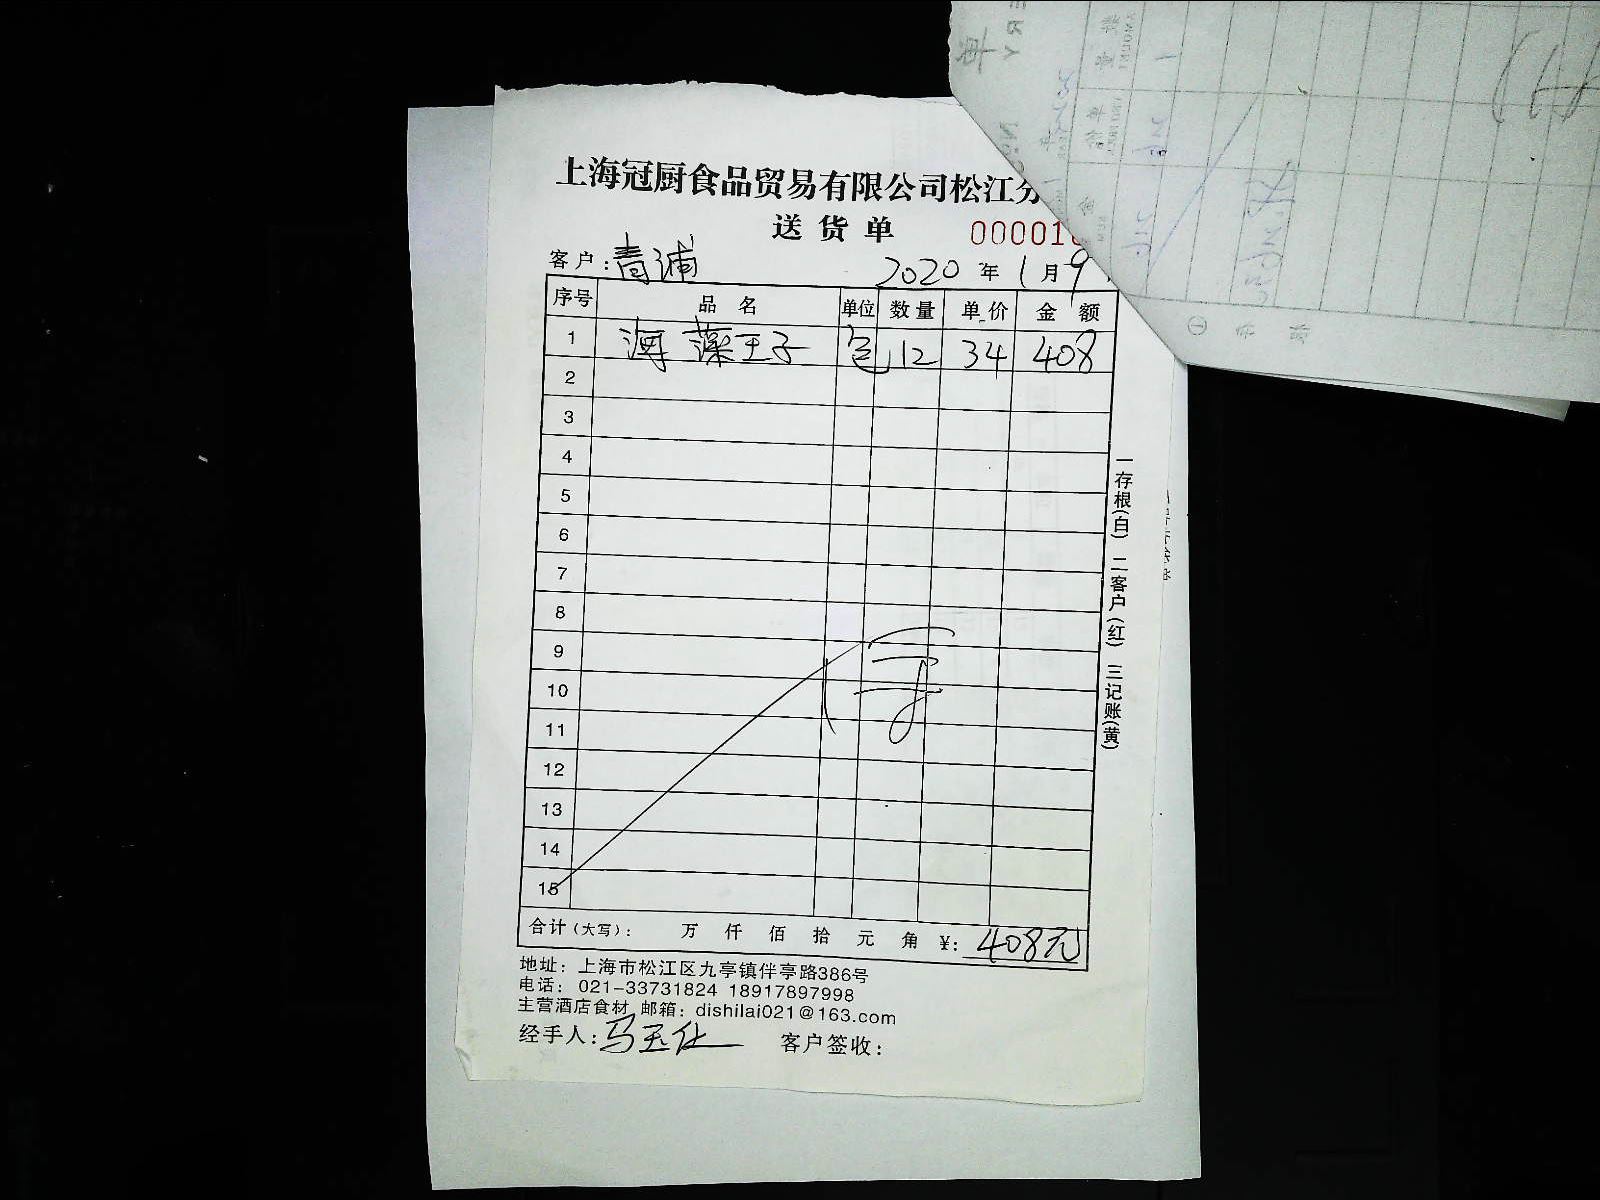 上海冠厨食品贸易有限公司松江分
送货单 00001
客户：青浦 2020年1月9
序号 品名 单位 数量 单价 金额
1 海藻王子 包 12 34 408
2
3
4
5
6
7
8
9
10
11
12
13
14
15
合计（大写）： 万 仟 佰 拾 元 角 ¥：408元
地址：上海市松江区九亭镇伴亭路386号
电话：021-33731824 18917897998
主营酒店食材 邮箱：dishilai021@163.com
经手人：马玉仕 客户签收：
一存根(白) 二客户(红) 三记账(黄)